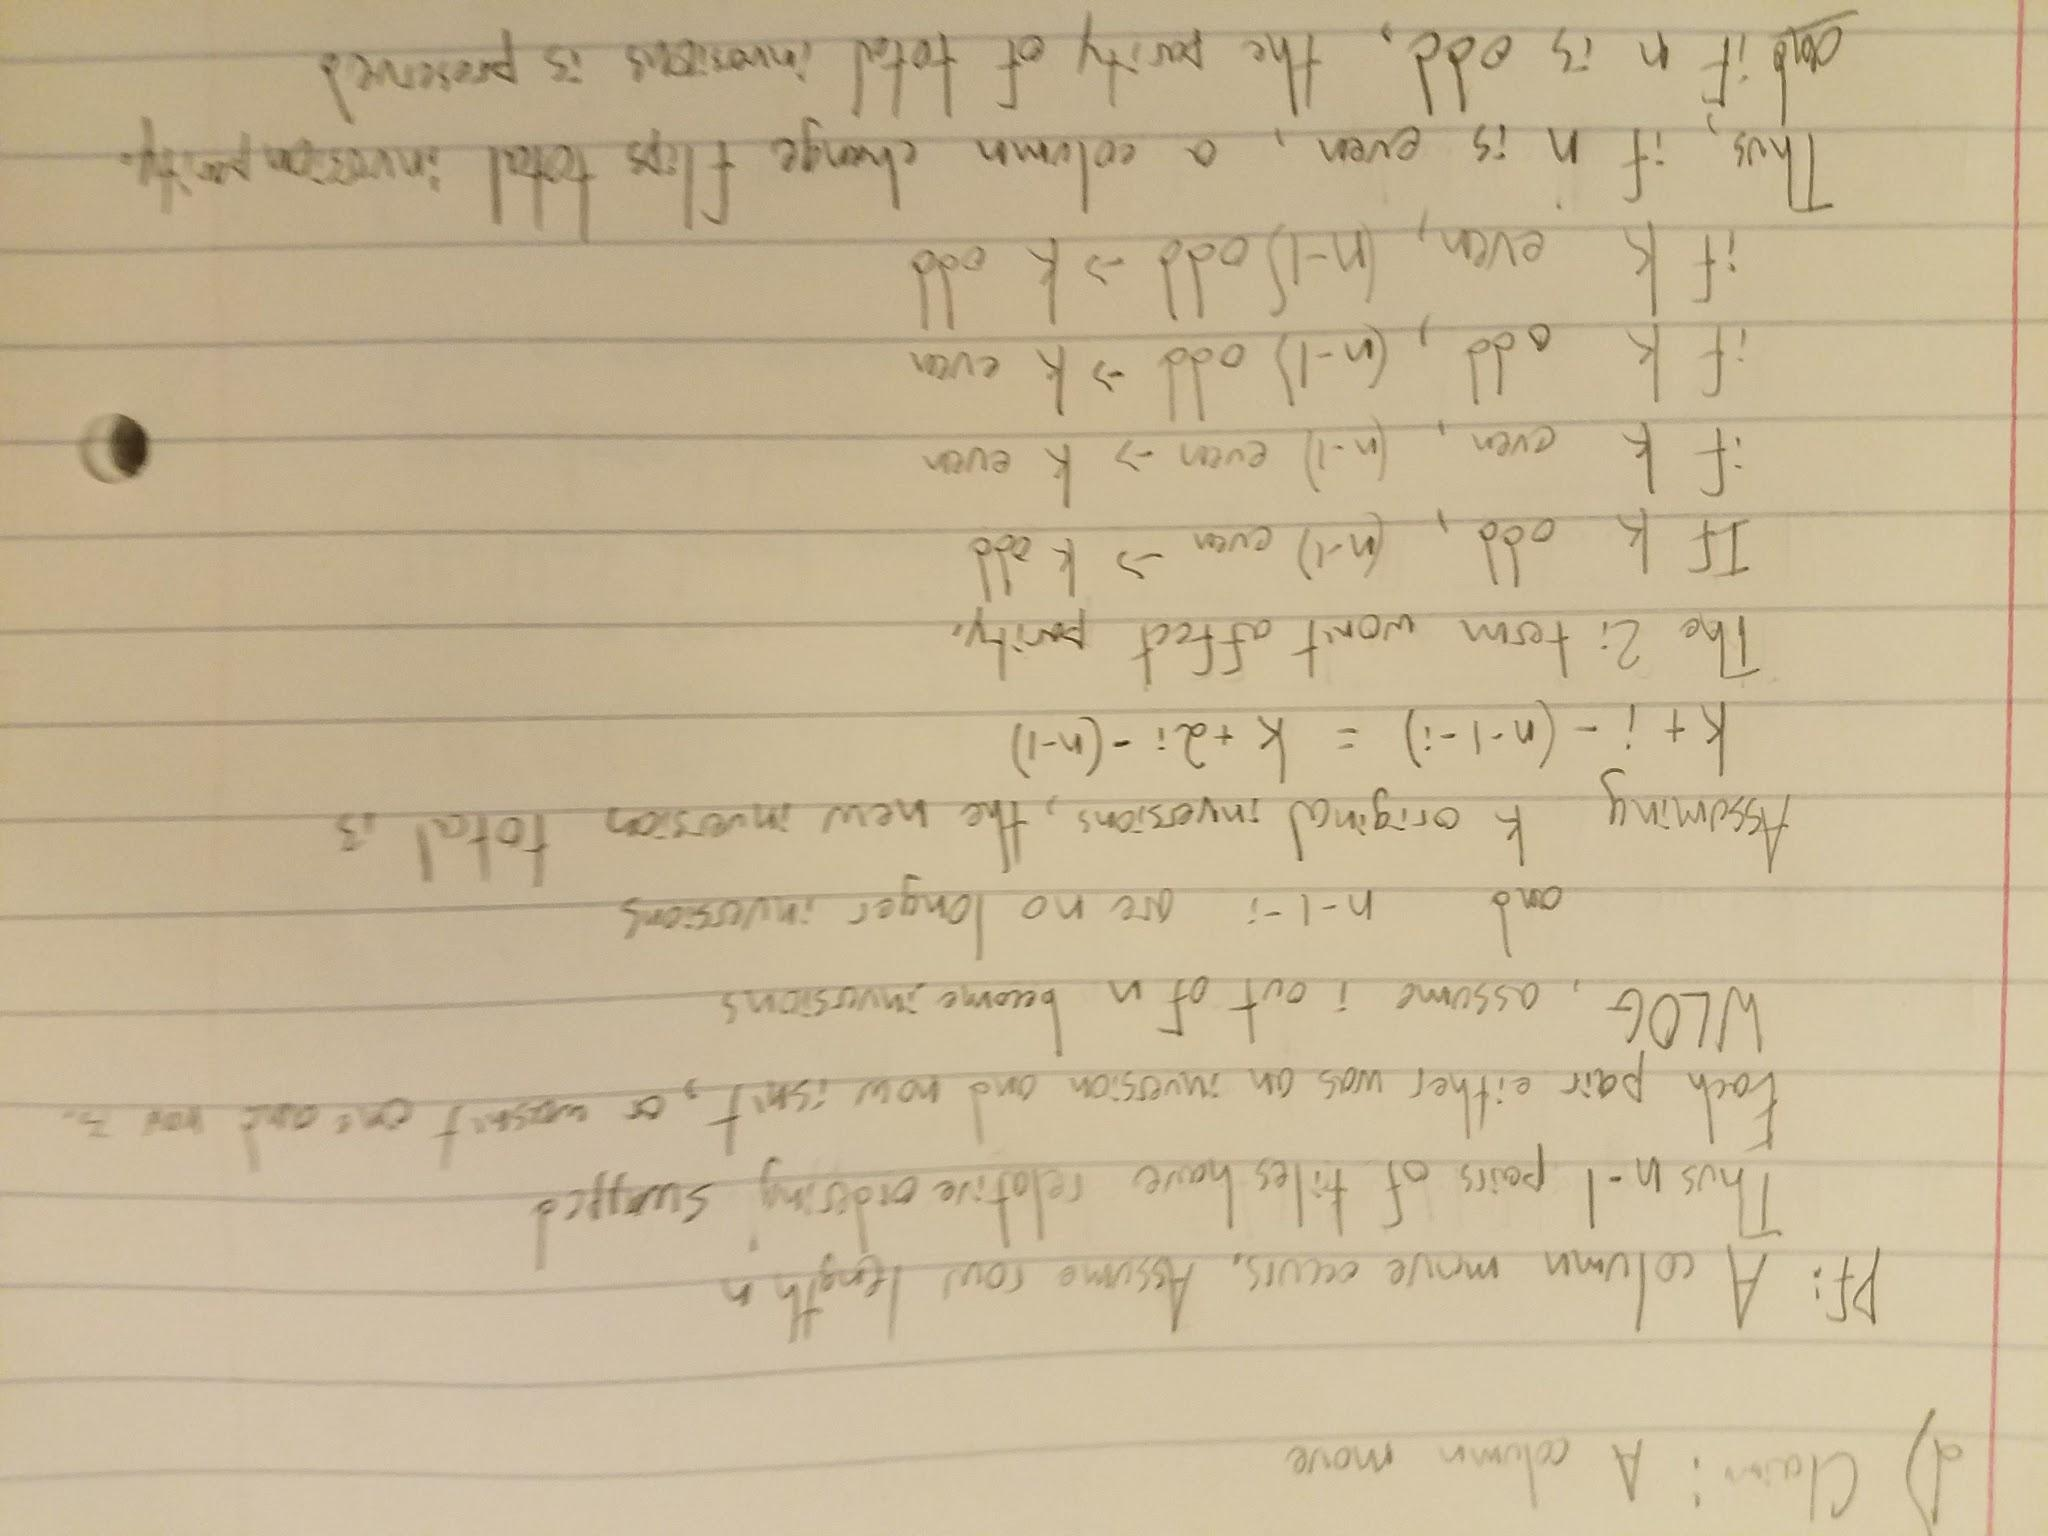 d) Claim: A column move
Pf: A column move occurs. Assume row length n
Thus n-1 pairs of tiles have relative ordering swapped
Each pair either was an inversion and now isn't, or wasn't one and now is.
WLOG, assume i out of n become inversions
and n-1-i are no longer inversions
Assuming k original inversions, the new inversion total is
k + i - (n-1-i) = k + 2i - (n-1)
The 2i term won't affect parity.
If k odd, (n-1) even -> k odd
if k even, (n-1) even -> k even
if k odd, (n-1) odd -> k even
if k even, (n-1) odd -> k odd
Thus, if n is even, a column change flips total inversion parity.
and if n is odd, the parity of total inversions is preserved